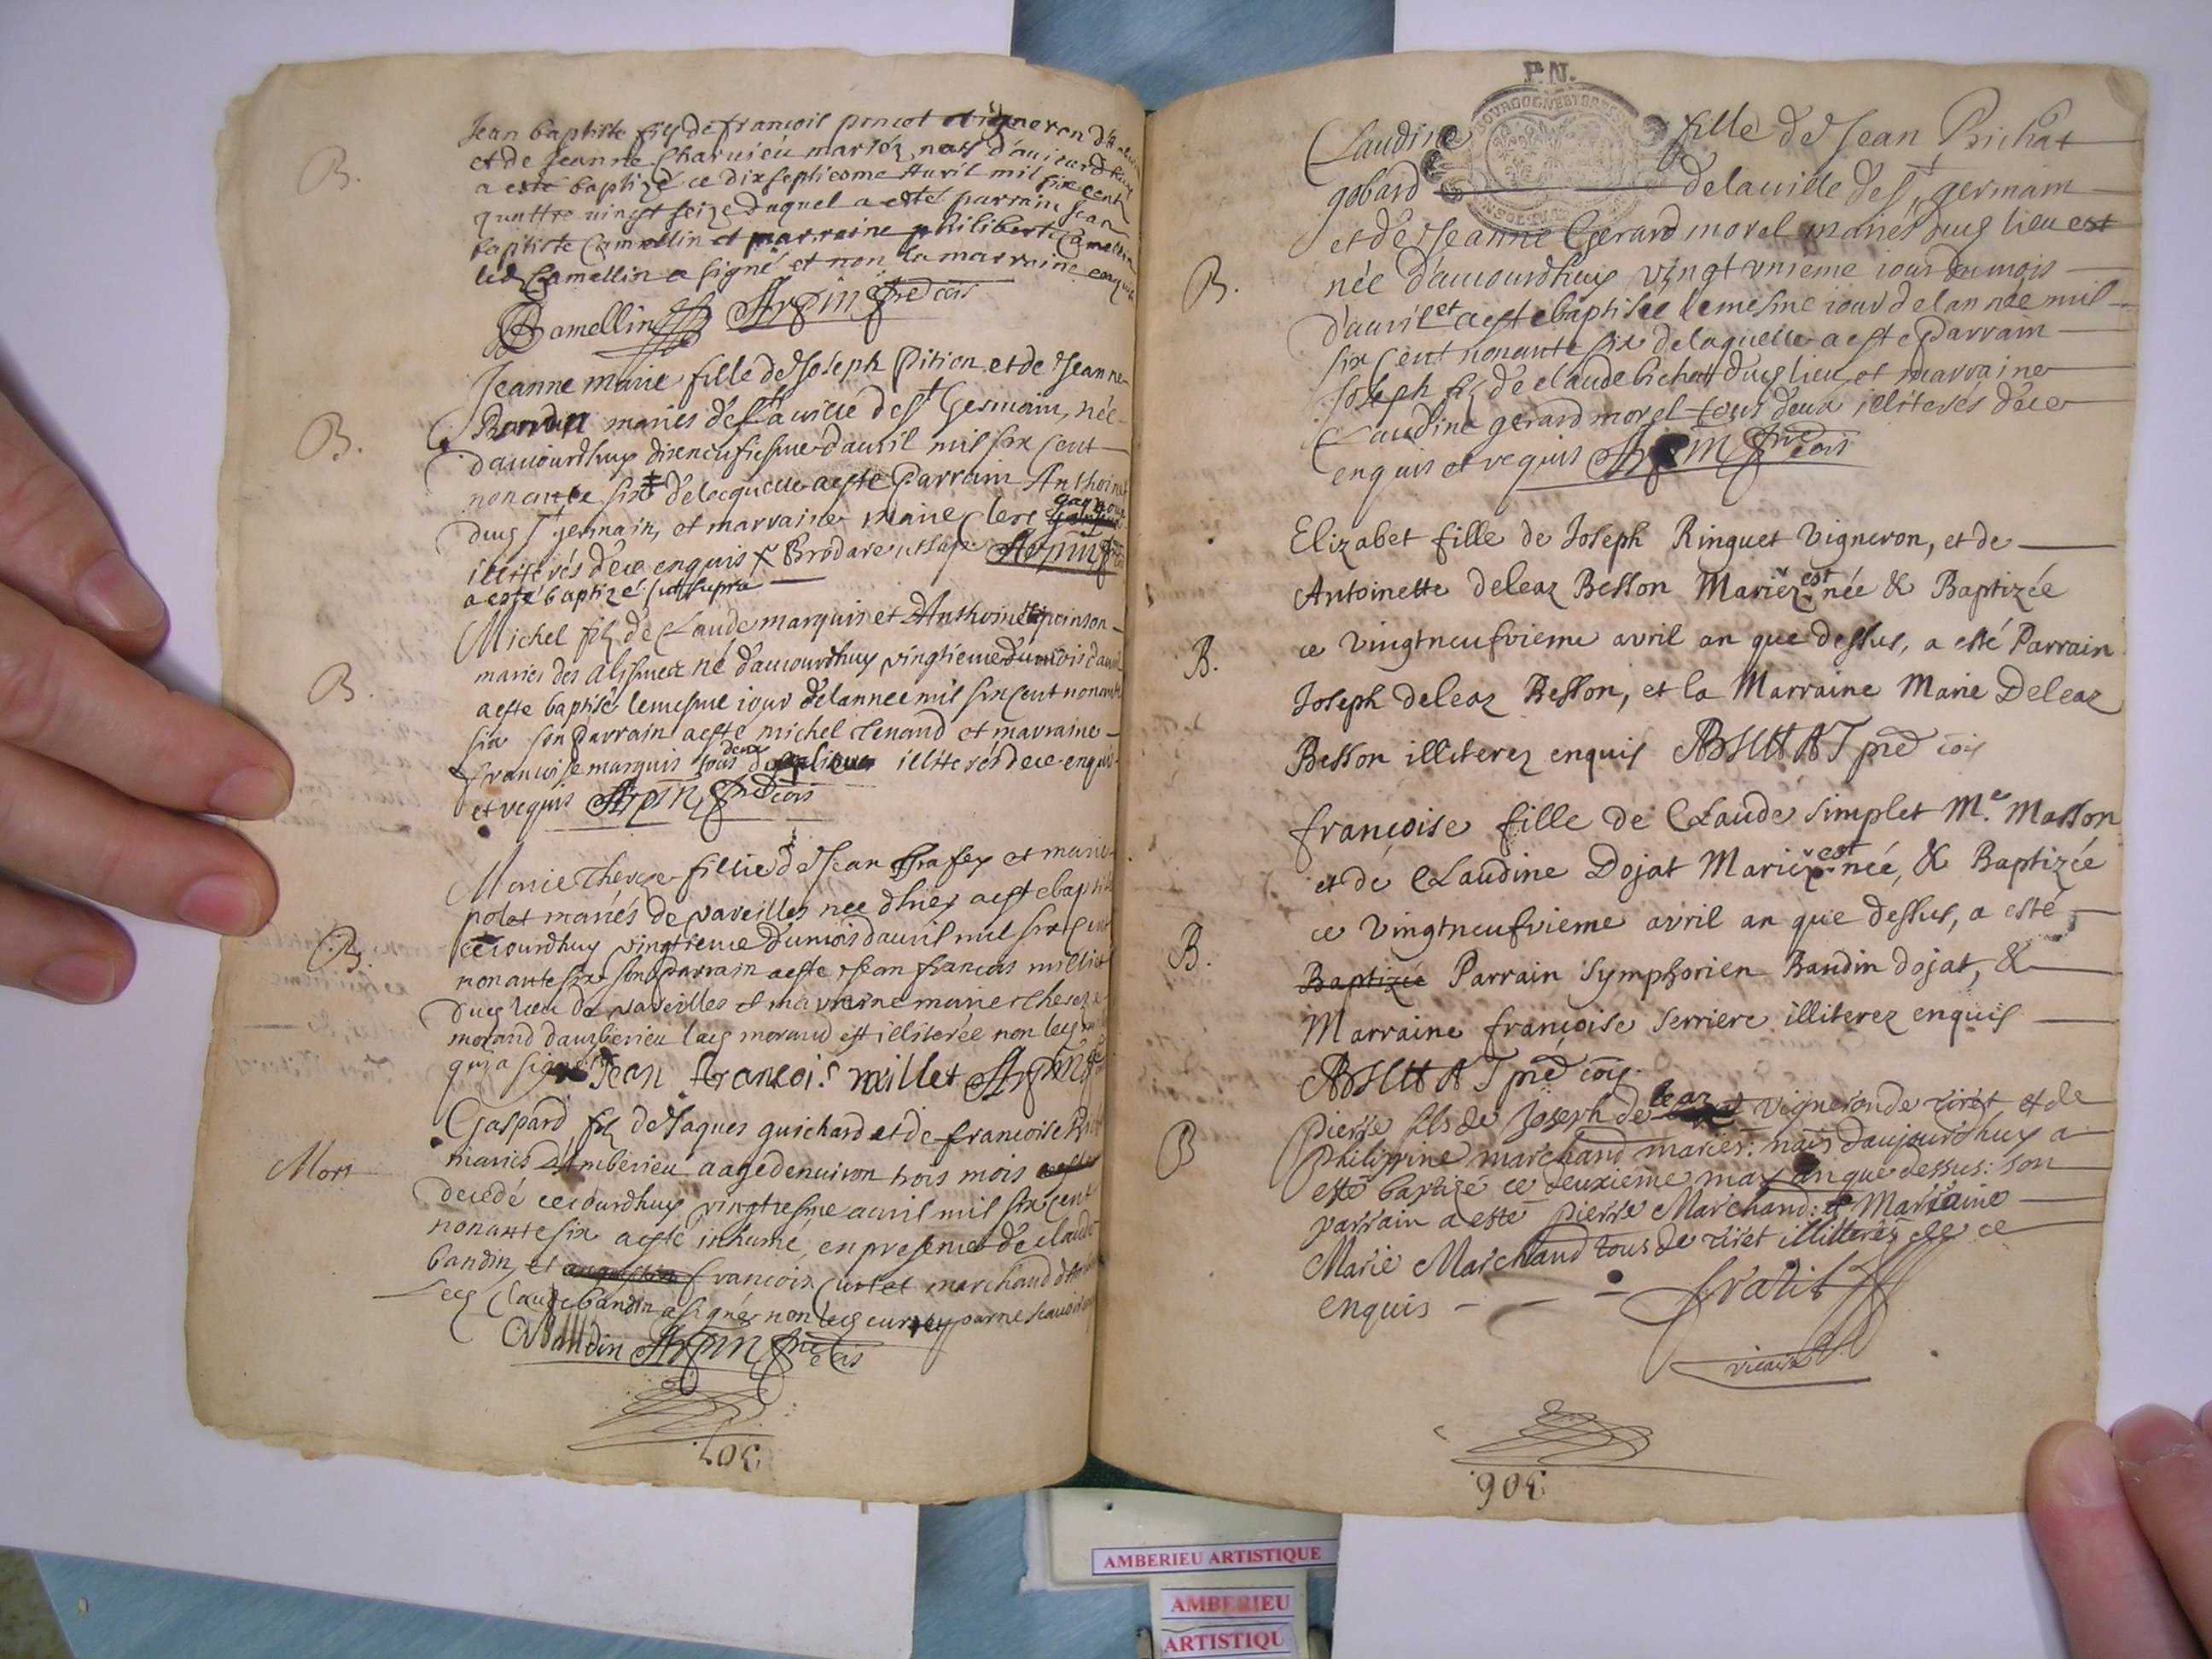 B.
Jean baptiste fils de francois poncot vigneron d'
et de Jeanne Charuieu mariéz, nais d'auiourdhuy
a esté baptizé ce dixseptiesme Auril mil six cent
quattre vingt seize duquel a esté parrain Jean
baptiste Camellin et marraine philiberte Camellin
led Camellin a signé et non la marraine enquise
Camellin Arpin pred cois
B.
Jeanne marie fille de Joseph Pition et de Jeanne
mariés de la ville de st Germain, née
d'auiourdhuy dixneufiesme d'auril mil six cent
nonante six delacquelle a esté Parrain Anthoine
dud st germain, et marraine Marie Clerc
illiterés d'ece enquis Arpin
a esté baptizé ut supra
B.
Michel fils de Claude marquis et d'Anthoinette poinson
mariés des Alismes né d'auiourdhuy vingtieme du mois d'auril
a este baptisé lemesme iour delannee mil six cent nonante
six son Parrain a esté michel Tenand et marraine
francoise marquis tous deux illiterés dece enquis
et requis Arpin pred cois
B.
Marie Thereze fillie de Jean et marie
polet mariés de vareilles nee d'hier a este baptisée
cejourdhuy vingtieme du mois dauril mil six cent
nonante six son Parrain a este Jean francois milliet
dud lieu de vareilles et marraine marie thereze
morand d'amberieu lad morand est illiterée non led
qui a signé Jean francois millet Arpin
Mort
Gaspard fils de Jaques guichard et de francoise
mariés d'Amberieu aagé denuiron trois mois
decedé cejourdhuy vingtiesme auril mil six cent
nonante six a esté inhumé, en presence de claude
bandin, et francois curtet marchand
Led Claude bandin a signé non led curtet par ne scauoir
CBaudin Arpin pred cois
305
P.N.
BOVRGOGNE ET BRESSE
Claudine fille de Jean Bichat
gobard de la ville de st germain
et de Jeanne Gerard morel mariés dud lieu est
née d'auiourdhuy vingt unieme iour du mois
B.
d'auril et a esté baptisée lemesme iour delannée mil
six cent nonante six delaquelle a este Parrain
Joseph fils de claude bichat dud lieu, et marraine
Claudine gerard morel tous deux illiterés dece
enquis et requis Arpin pred cois
Elizabet fille de Joseph Ringuet Vigneron, et de
Antoinette deleaz Besson Mariez est née & Baptizée
B.
ce vingtneufvieme avril an que dessus, a esté Parrain
Joseph deleaz Besson, et la Marraine Marie Deleaz
Besson illiterez enquis ABSUHAT pred cois
françoise fille de Claude Simplet Me. Masson
et de Claudine Dojat Mariez est née, & Baptizée
ce vingtneufvieme avril an que dessus, a esté
B.
Baptizée Parrain Symphorien Baudin dojat, &
Marraine françoise Serriere illiterez enquis
ABSUHAT pred cois
B
pierre fils de Joseph de leaz vigneron de tiret et de
philippine marchand mariés: nais daujourd'huy a
esté baptizé ce deuxiéme may an que dessus: son
parrain a esté pierre Marchand: & Marraine
Marie Marchand tous de tiret illitterés de ce
enquis
vicaire
306
AMBERIEU ARTISTIQUE
AMBERIEU
ARTISTIQU